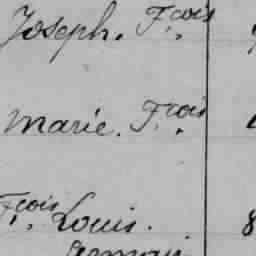 Joseph. Fçois
Marie. Fçois
Fçois Louis. 8